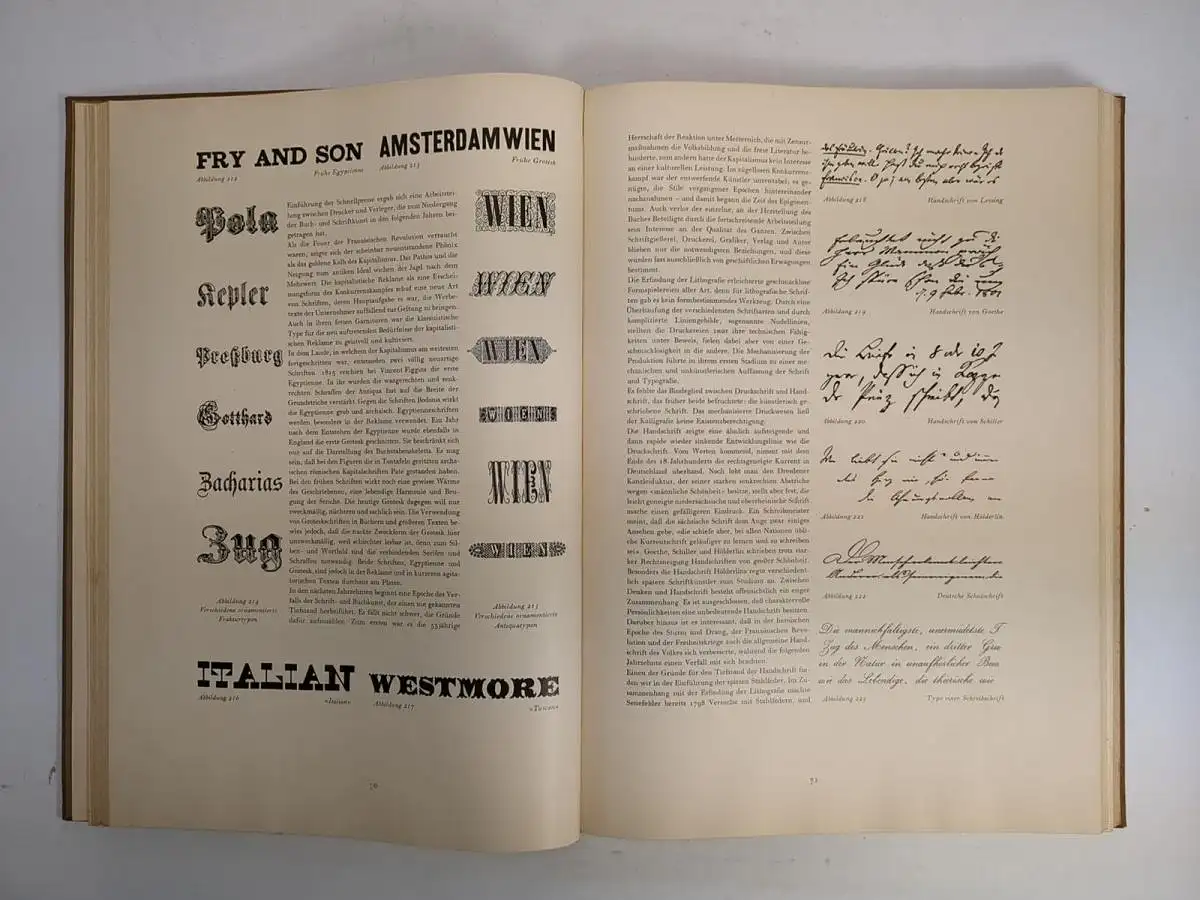 FRY AND SON
Abbildung 212
Frühe Egyptienne
AMSTERDAM WIEN
Abbildung 213
Frühe Grotesk
Pola
Kepler
Preßburg
Gotthard
Zacharias
Zug
Abbildung 214
Verschiedene ornamentierte
Frakturtypen
Einführung der Schnellpresse ergab sich eine Arbeitstei-
lung zwischen Drucker und Verleger, die zum Niedergang
der Buch- und Schriftkunst in den folgenden Jahren bei-
getragen hat.
Als die Feuer der Französischen Revolution verraucht
waren, zeigte sich der scheinbar neuentstandene Phönix
als das goldene Kalb des Kapitalismus. Das Pathos und die
Neigung zum antiken Ideal wichen der Jagd nach dem
Mehrwert. Die kapitalistische Reklame als eine Erschei-
nungsform des Konkurrenzkampfes schuf eine neue Art
von Schriften, deren Hauptaufgabe es war, die Werbe-
texte der Unternehmer auffallend zur Geltung zu bringen.
Auch in ihren fetten Garnituren war die klassizistische
Type für die neu auftretenden Bedürfnisse der kapitalisti-
schen Reklame zu geistvoll und kultiviert.
In dem Lande, in welchem der Kapitalismus am weitesten
fortgeschritten war, entstanden zwei völlig neuartige
Schriften. 1815 erschien bei Vincent Figgins die erste
Egyptienne. In ihr wurden die waagerechten und senk-
rechten Schraffen der Antiqua fast auf die Breite der
Grundstriche verstärkt. Gegen die Schriften Bodonis wirkt
die Egyptienne grob und archaisch. Egyptienneschriften
werden besonders in der Reklame verwendet. Ein Jahr
nach dem Entstehen der Egyptienne wurde ebenfalls in
England die erste Grotesk geschnitten. Sie beschränkt sich
nur auf die Darstellung des Buchstabenskeletts. Es mag
sein, daß bei den Figuren die in Tontafeln geritzten archa-
ischen römischen Kapitalschriften Pate gestanden haben.
Bei den frühen Schriften wirkt noch eine gewisse Wärme
des Geschriebenen, eine lebendige Harmonie und Beu-
gung der Striche. Die heutige Grotesk dagegen will nur
zweckmäßig, nüchtern und sachlich sein. Die Verwendung
von Groteskschriften in Büchern und größeren Texten be-
wies jedoch, daß die nackte Zweckform der Grotesk hier
unzweckmäßig, weil schlechter lesbar ist, denn zum Sil-
ben- und Wortbild sind die verbindenden Serifen und
Schraffen notwendig. Beide Schriften, Egyptienne und
Grotesk, sind jedoch in der Reklame und in kürzeren agita-
torischen Texten durchaus am Platze.
In den nächsten Jahrzehnten beginnt eine Epoche des Ver-
falls der Schrift- und Buchkunst, der einen nie gekannten
Tiefstand herbeiführt. Es fällt nicht schwer, die Gründe
dafür aufzuzählen. Zum ersten war es die 33jährige
WIEN
WIEN
WIEN
WIEN
WIEN
WIEN
Abbildung 215
Verschiedene ornamentierte
Antiquatypen
ITALIAN
Abbildung 216
»Italian«
WESTMORE
Abbildung 217
»Tuscan«
70
Herrschaft der Reaktion unter Metternich, die mit Zensur-
maßnahmen die Volksbildung und die freie Literatur be-
hinderte, zum andern hatte der Kapitalismus kein Interesse
an einer kulturellen Leistung. Im zügellosen Konkurrenz-
kampf war der entwerfende Künstler unrentabel; es ge-
nügte, die Stile vergangener Epochen hintereinander
nachzuahmen – und damit begann die Zeit des Epigonen-
tums. Auch verlor der einzelne, an der Herstellung des
Buches Beteiligte durch die fortschreitende Arbeitsteilung
sein Interesse an der Qualität des Ganzen. Zwischen
Schriftgießerei, Druckerei, Grafiker, Verlag und Autor
blieben nur die notwendigsten Beziehungen, und diese
wurden fast ausschließlich von geschäftlichen Erwägungen
bestimmt.
Die Erfindung der Lithografie erleichterte geschmacklose
Formspielereien aller Art, denn für lithografische Schrif-
ten gab es kein formbestimmendes Werkzeug. Durch eine
Überhäufung der verschiedensten Schriftarten und durch
komplizierte Liniengebilde, sogenannte Nudellinien,
stellten die Druckereien zwar ihre technischen Fähig-
keiten unter Beweis, fielen dabei aber von einer Ge-
schmacklosigkeit in die andere. Die Mechanisierung der
Produktion führte in ihrem ersten Stadium zu einer me-
chanischen und unkünstlerischen Auffassung der Schrift
und Typografie.
Es fehlte das Bindeglied zwischen Druckschrift und Hand-
schrift, das früher beide befruchtete: die künstlerisch ge-
schriebene Schrift. Das mechanisierte Druckwesen ließ
der Kalligrafie keine Existenzberechtigung.
Die Handschrift zeigte eine ähnlich aufsteigende und
dann rapide wieder sinkende Entwicklungslinie wie die
Druckschrift. Vom Westen kommend, nimmt mit dem
Ende des 18. Jahrhunderts die rechtsgeneigte Kurrent in
Deutschland überhand. Noch lobt man den Dresdener
Kanzleiduktus, der seiner starken senkrechten Abstriche
wegen »männliche Schönheit« besitze, stellt aber fest, die
leicht geneigte niedersächsische und oberrheinische Schrift
mache einen gefälligeren Eindruck. Ein Schreibmeister
meint, daß die sächsische Schrift dem Auge zwar einiges
Ansehen gebe, »die schiefe aber, bei allen Nationen übli-
che Kurrentschrift geläufiger zu lernen und zu schreiben
sei«. Goethe, Schiller und Hölderlin schrieben trotz star-
ker Rechtsneigung Handschriften von großer Schönheit.
Besonders die Handschrift Hölderlins regte verschiedent-
lich spätere Schriftkünstler zum Studium an. Zwischen
Denken und Handschrift besteht offensichtlich ein enger
Zusammenhang. Es ist ausgeschlossen, daß charaktervolle
Persönlichkeiten eine unbedeutende Handschrift besitzen.
Darüber hinaus ist es interessant, daß in der heroischen
Epoche des Sturm und Drang, der Französischen Revo-
lution und der Freiheitskriege auch die allgemeine Hand-
schrift des Volkes sich verbesserte, während die folgenden
Jahrzehnte einen Verfall mit sich brachten.
Einen der Gründe für den Tiefstand der Handschrift fin-
den wir in der Einführung der spitzen Stahlfeder. Im Zu-
sammenhang mit der Erfindung der Lithografie machte
Senefelder bereits 1798 Versuche mit Stahlfedern, und
Abbildung 218
Handschrift von Lessing
Abbildung 219
Handschrift von Goethe
Die Briefe in 8 der 10
Abbildung 220
Handschrift von Schiller
Abbildung 221
Handschrift von Hölderlin
Abbildung 222
Deutsche Schulschrift
Die mannichfaltigste, unvermeidetste T
Zug des Menschen, ein dritter Grie
in der Natur in unaufhörlicher Bew
wie das Lebendige, die thierische wie
Abbildung 223
Type einer Schreibschrift
71